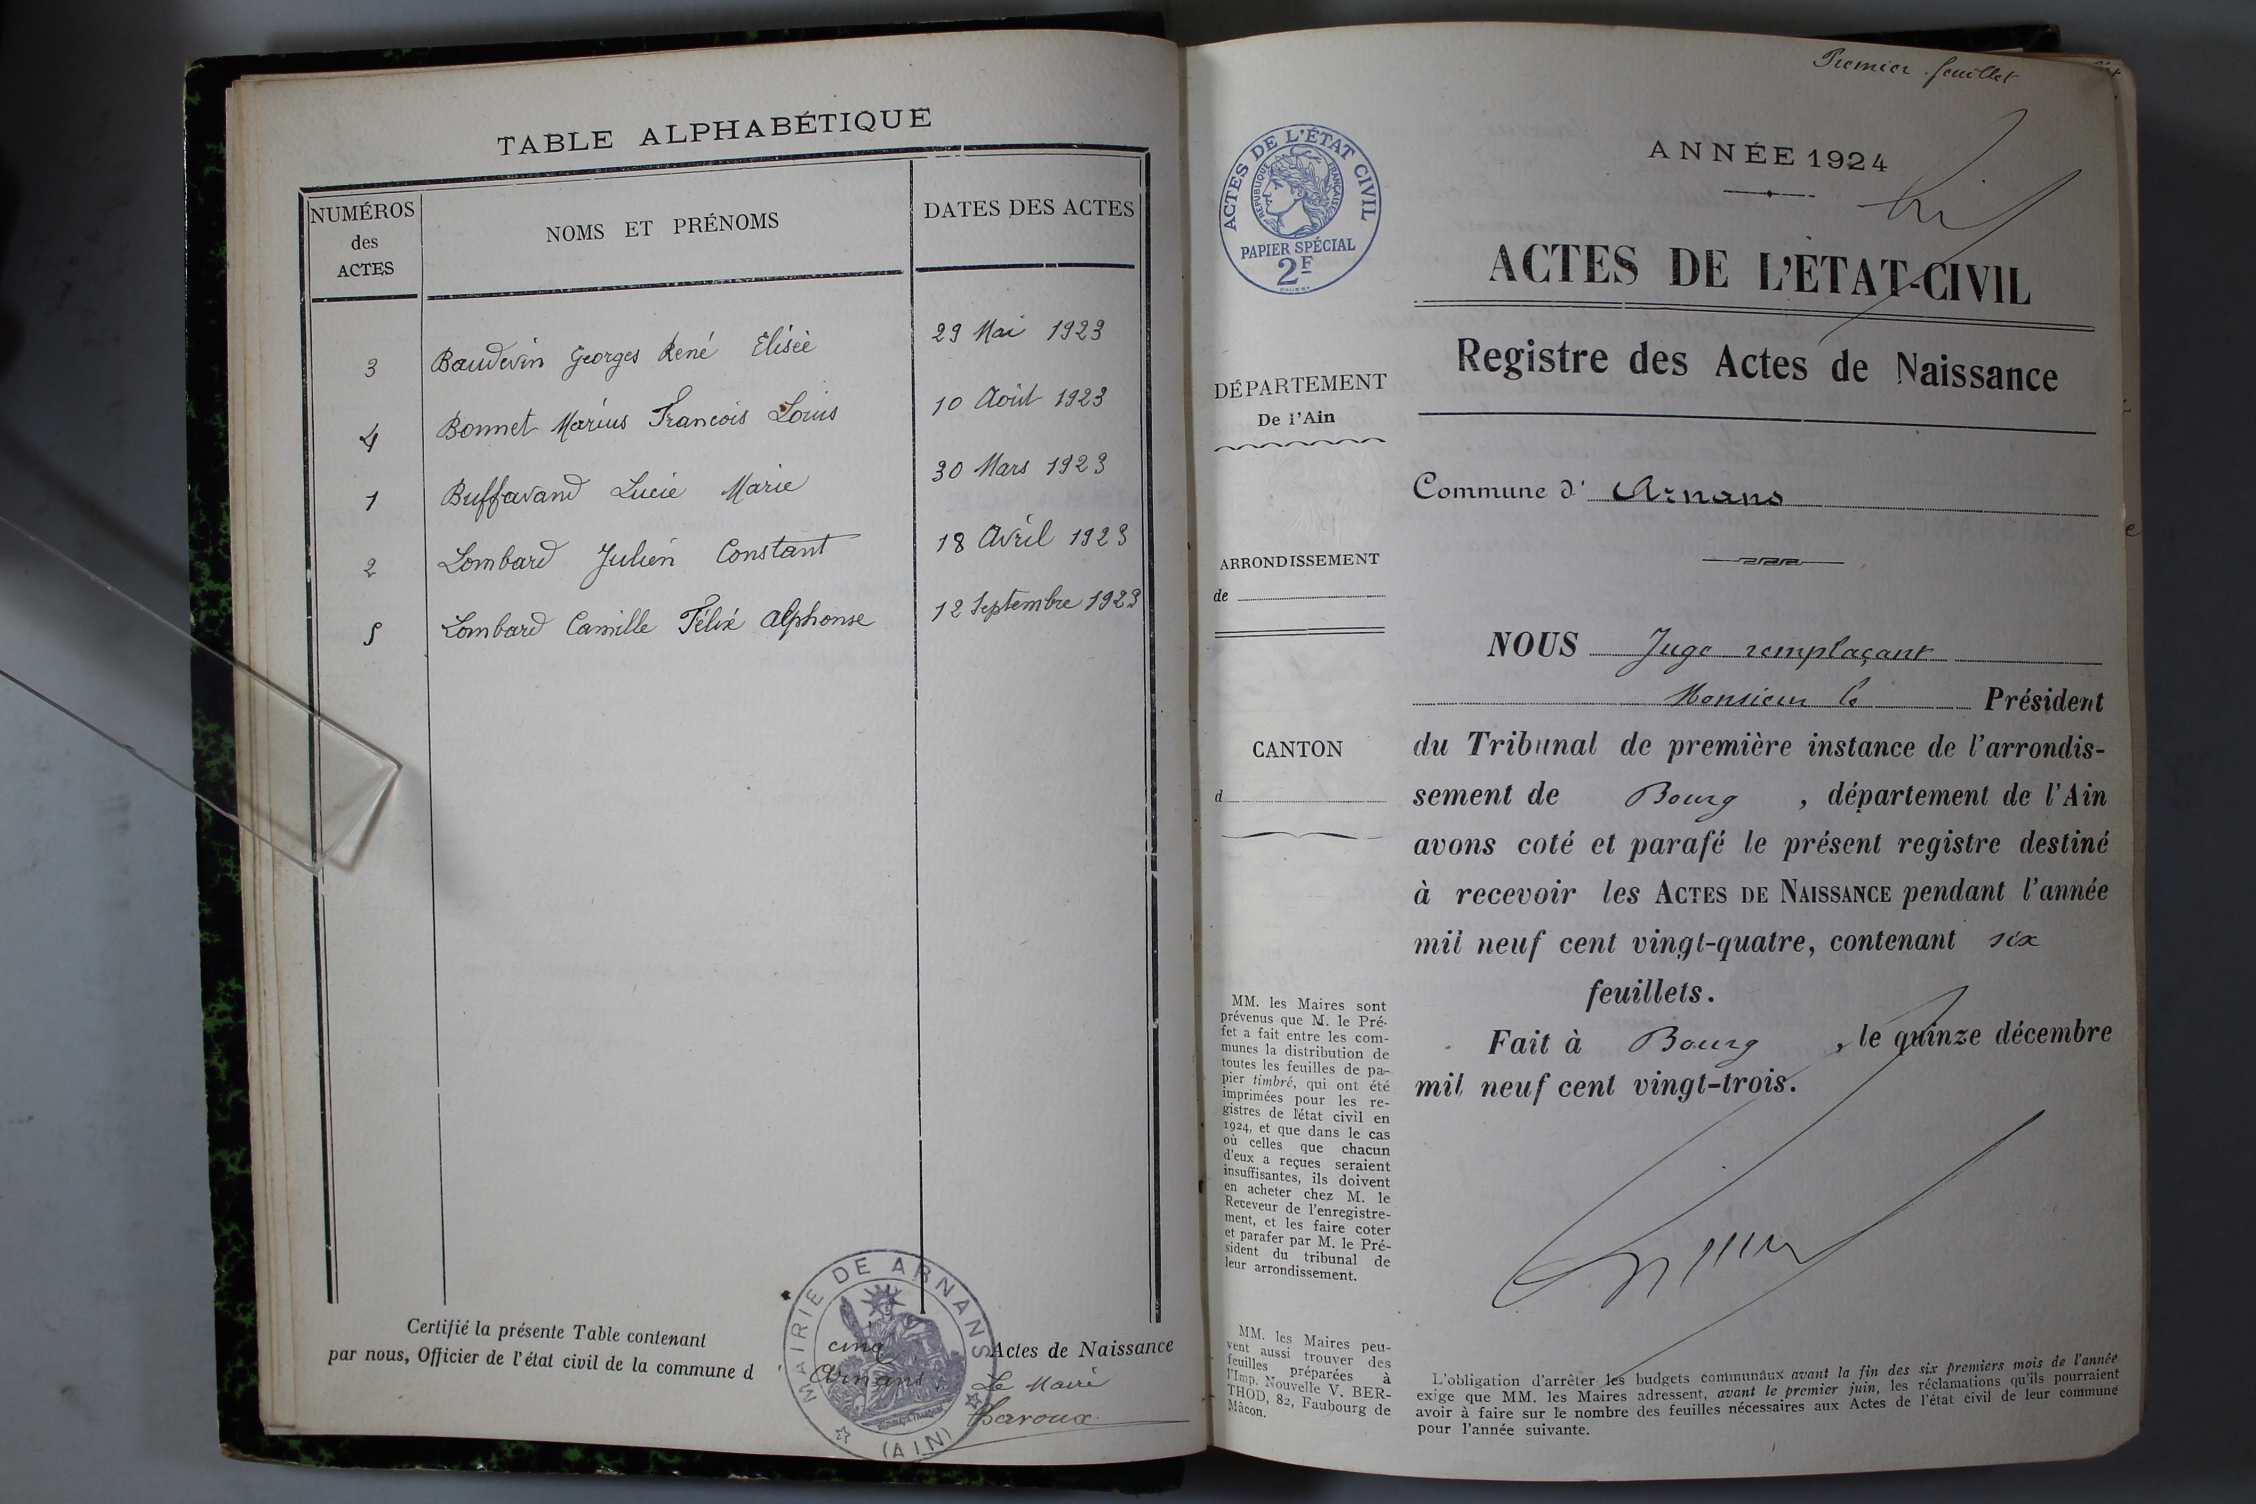 TABLE ALPHABÉTIQUE
NUMÉROS
des
ACTES
NOMS ET PRÉNOMS
DATES DES ACTES
3 Baudevin Georges René Elisée 29 Mai 1923
4 Bonnet Marius Francois Louis 10 Août 1923
1 Buffavand Lucie Marie 30 Mars 1923
2 Lombard Julien Constant 18 Avril 1923
5 Lombard Camille Félix Alphonse 12 Septembre 1923
Certifié la présente Table contenant cinq Actes de Naissance
par nous, Officier de l'état civil de la commune d Arnans.
Le Maire
MAIRIE DE ARNANS
(AIN)
Premier feuillet
ANNÉE 1924
ACTES DE L'ÉTAT CIVIL
RÉPUBLIQUE FRANÇAISE
PAPIER SPÉCIAL
2F
ACTES DE L'ÉTAT-CIVIL
Registre des Actes de Naissance
DÉPARTEMENT
De l'Ain
Commune d' Arnans
ARRONDISSEMENT
de
CANTON
d
NOUS Juge remplaçant
Monsieur le Président
du Tribunal de première instance de l'arrondis-
sement de Bourg, département de l'Ain
avons coté et parafé le présent registre destiné
à recevoir les ACTES DE NAISSANCE pendant l'année
mil neuf cent vingt-quatre, contenant six
feuillets.
Fait à Bourg, le quinze décembre
mil neuf cent vingt-trois.
MM. les Maires sont
prévenus que M. le Pré-
fet a fait entre les com-
munes la distribution de
toutes les feuilles de pa-
pier timbré, qui ont été
imprimées pour les re-
gistres de l'état civil en
1924, et que dans le cas
où celles que chacun
d'eux a reçues seraient
insuffisantes, ils doivent
en acheter chez M. le
Receveur de l'enregistre-
ment, et les faire coter
et parafer par M. le Pré-
sident du tribunal de
leur arrondissement.
MM. les Maires peu-
vent aussi trouver des
feuilles préparées à
l'Imp. Nouvelle V. BER-
THOD, 82, Faubourg de
Mâcon.
L'obligation d'arrêter les budgets communaux avant la fin des six premiers mois de l'année
exige que MM. les Maires adressent, avant le premier juin, les réclamations qu'ils pourraient
avoir à faire sur le nombre des feuilles nécessaires aux Actes de l'état civil de leur commune
pour l'année suivante.